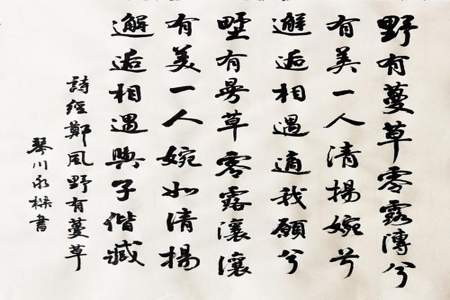 野有蔓草零露漙兮
有美一人清揚婉兮
邂逅相遇適我願兮
野有蔓草零露瀼瀼
有美一人婉如清揚
邂逅相遇與子偕臧
詩經鄭風野有蔓草
琴川永書